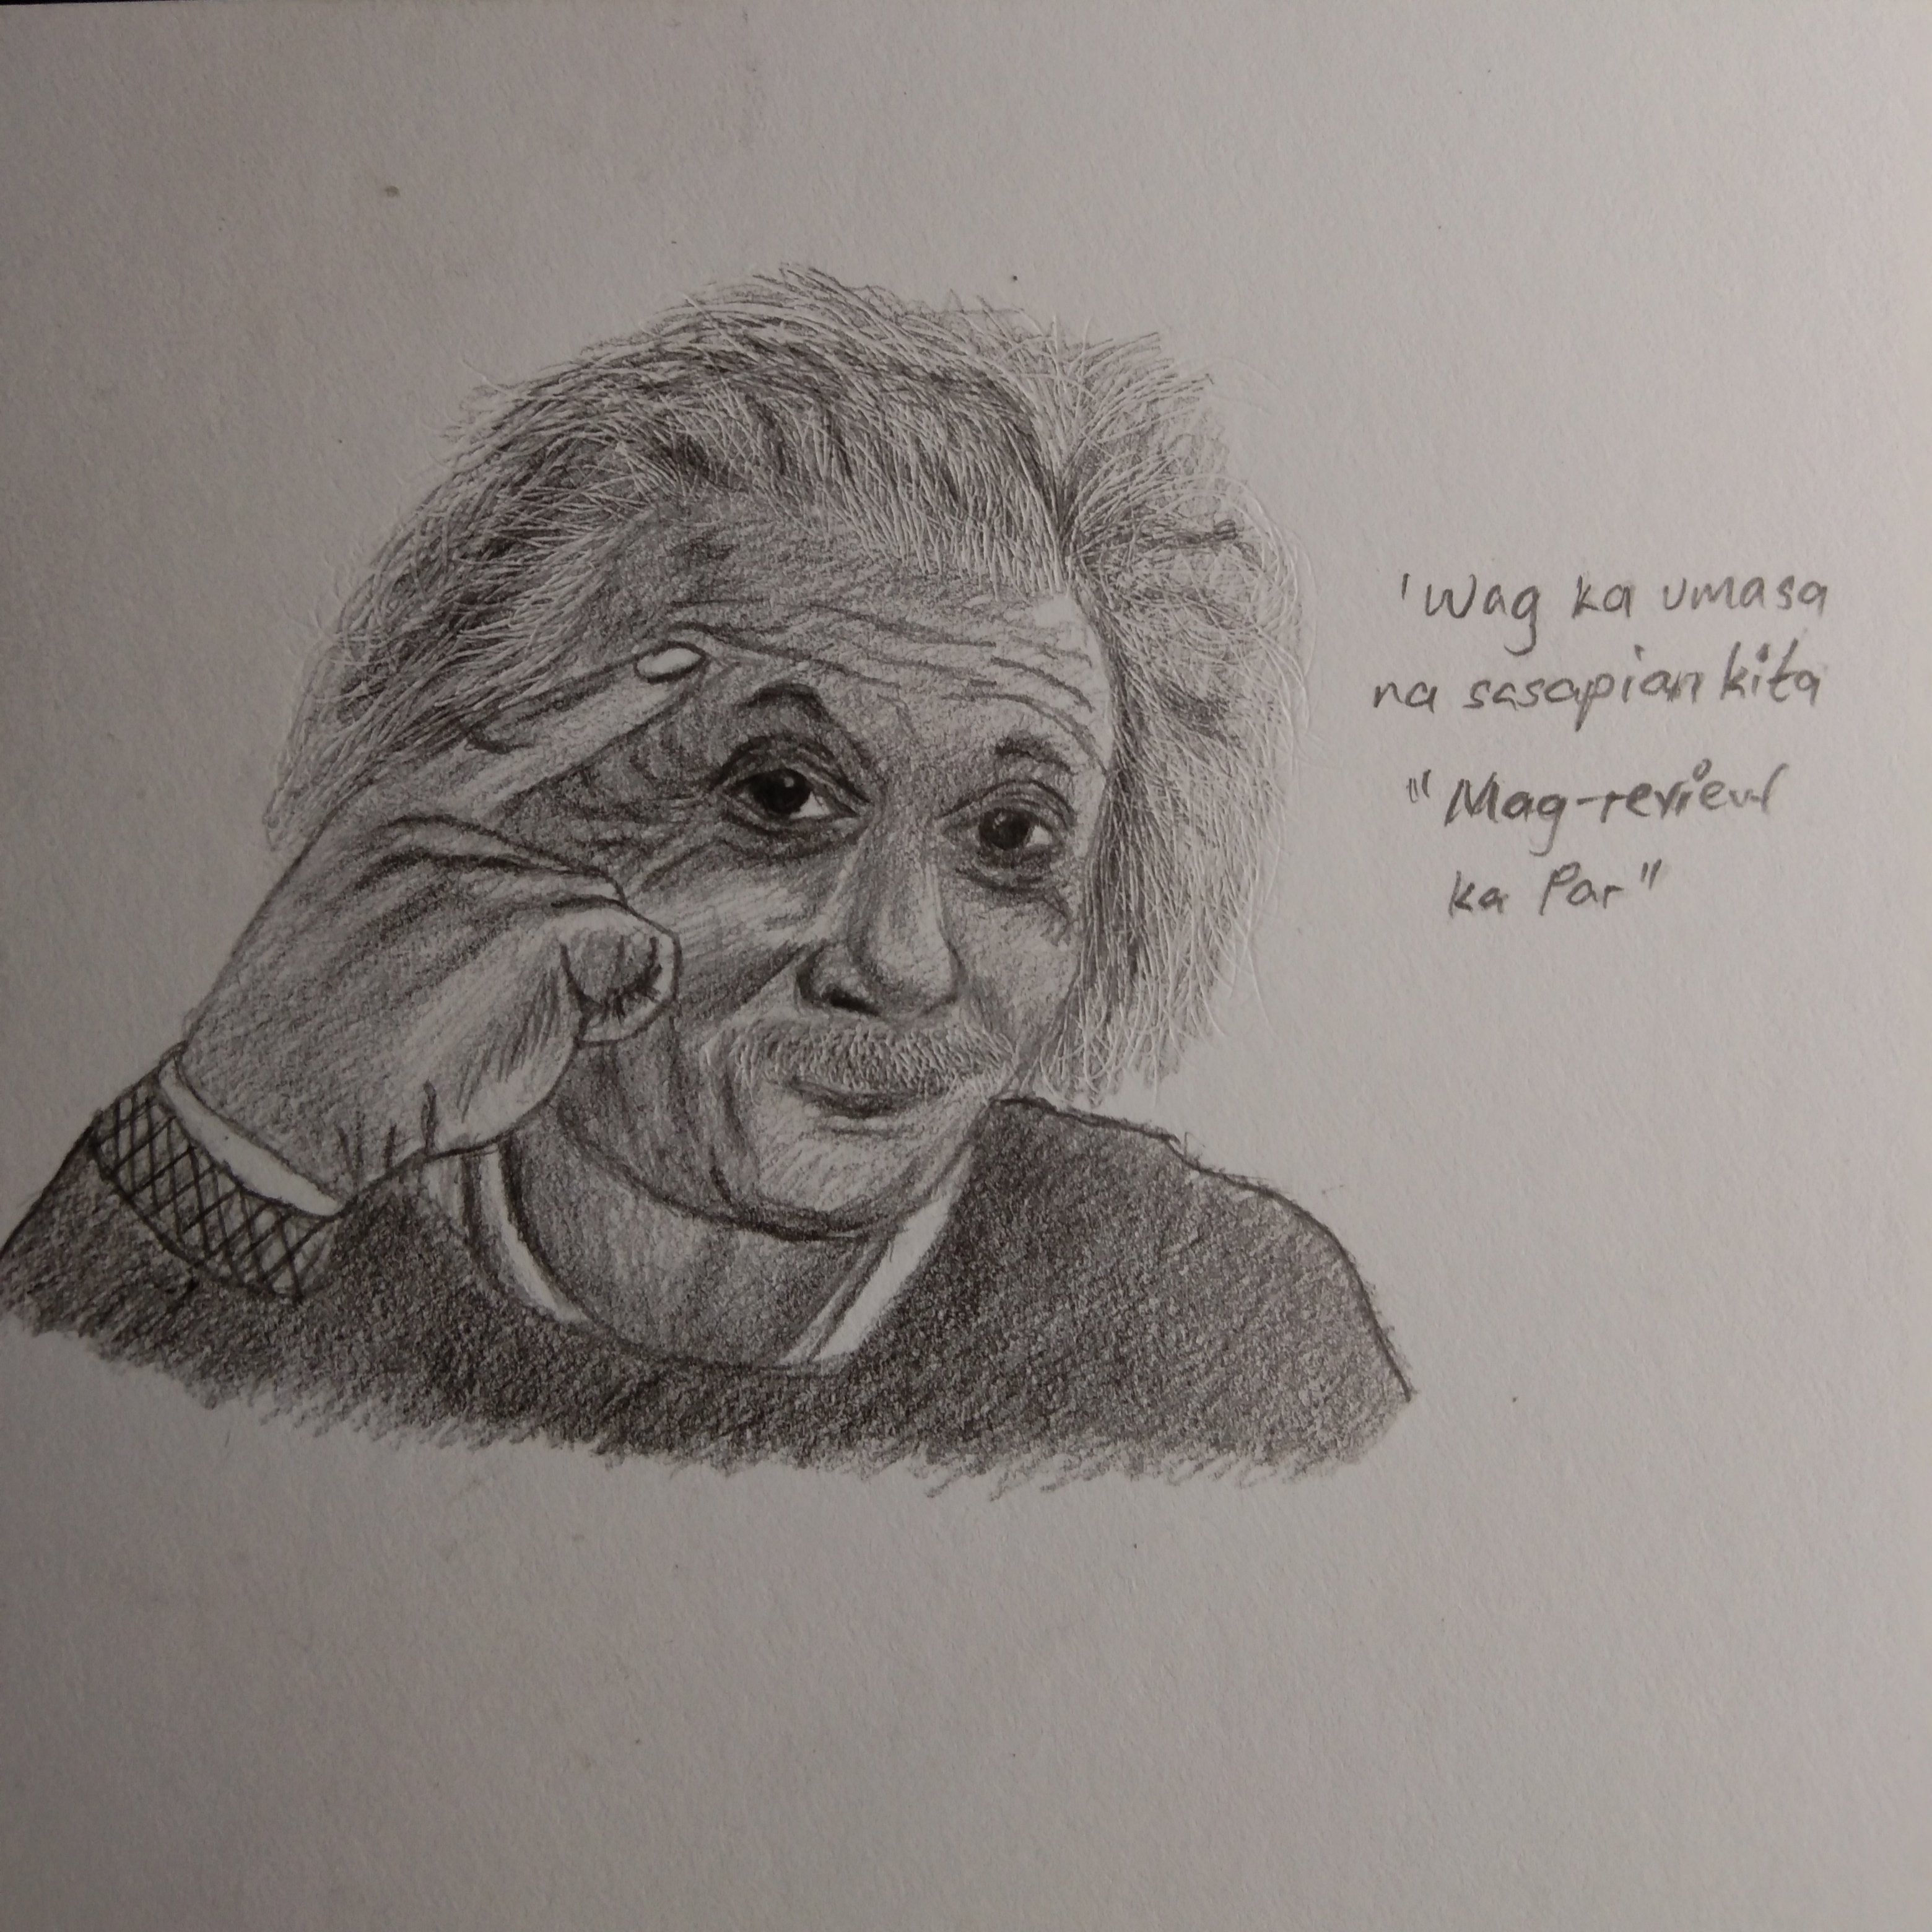 'Wag ka umasa
na sasapian kita
"Mag-review
ka Par"